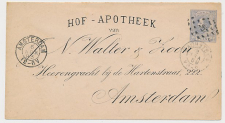 HOF-APOTHEEK
van
N. Walter & Zoon
Heerengracht bij de Hartenstraat, 222
Amsterdam
AMSTERDAM